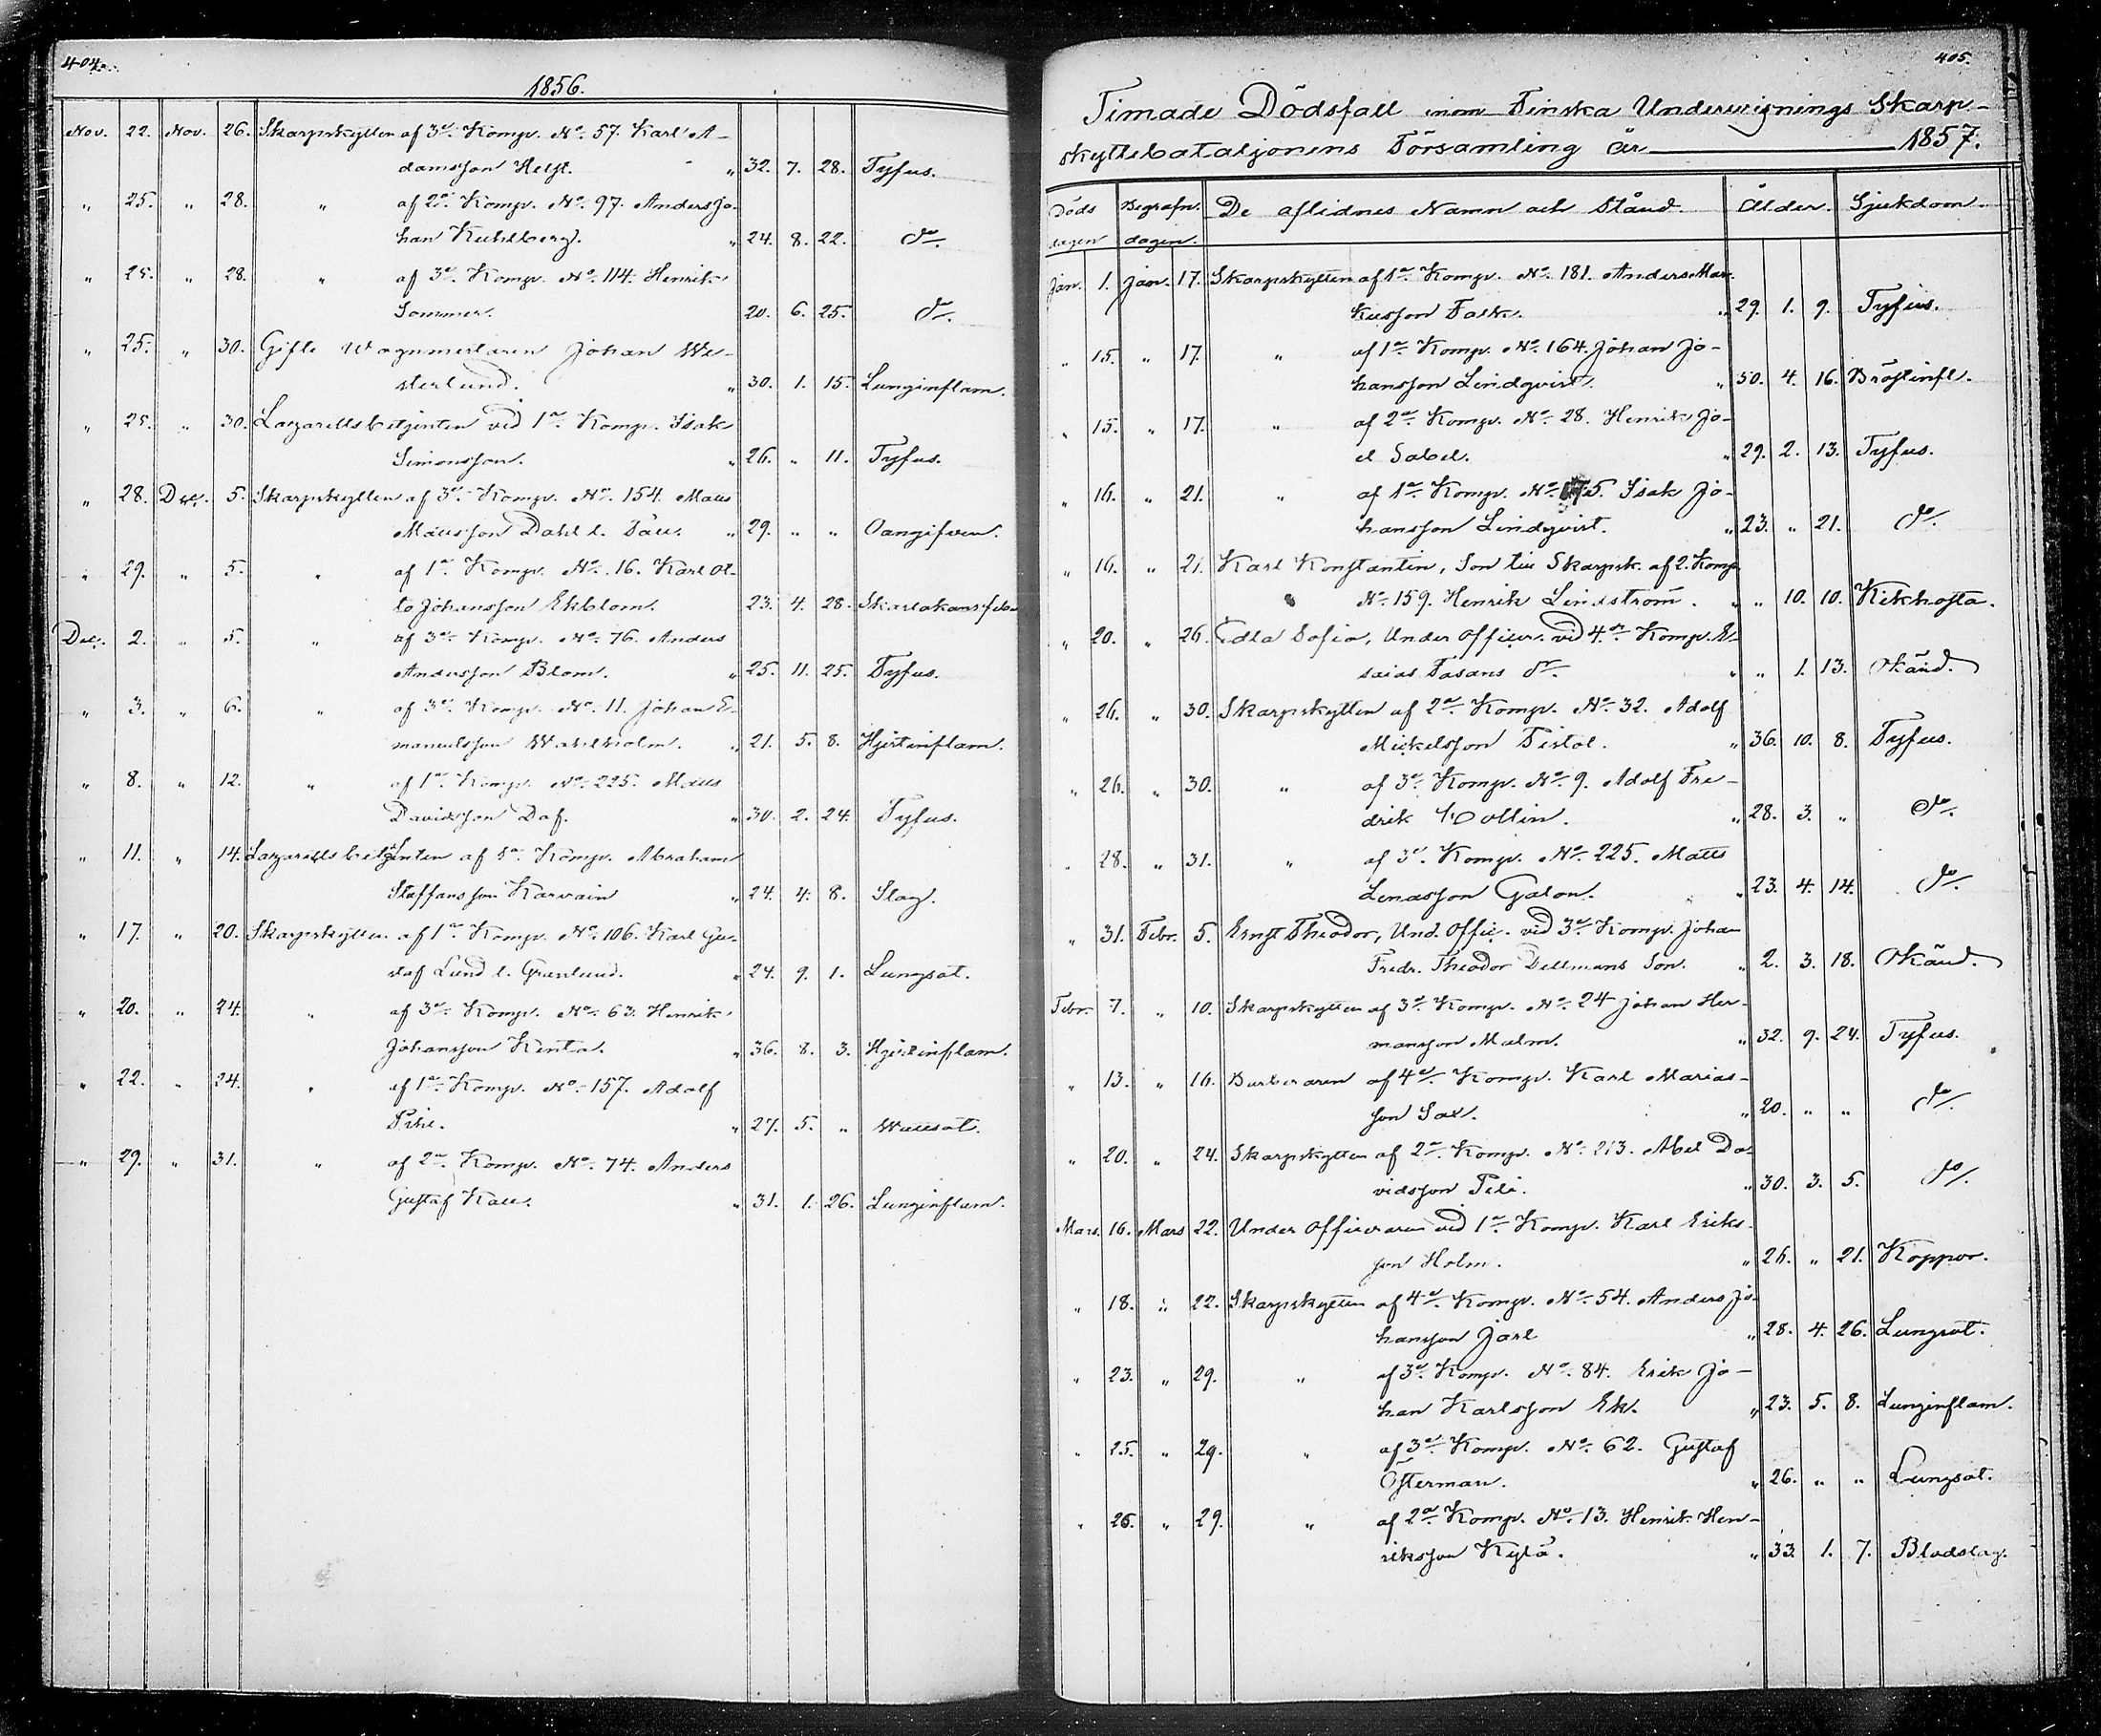 404.
1856.
Nov. 22. Nov. 26. Skarpskytten af 3:e Komp. No. 57. Karl A-
damsson Helst. " 32. 7. 28. Tyfus.
" 25. " 28. " af 2:a Komp. No. 97. Anders Jo-
han Kuhlberg. " 24. 8. 22. do.
" 25. " 28. " af 3:e Komp. No. 114. Henrik
Sommer. 20. 6. 25. do.
" 25. " 30. Gifte Wagnmestaren Johan We-
sterlund. " 30. 1. 15. Lunginflam.
" 25. " 30. Lazarettsbetjenten vid 1:a Komp. Isak
Simonsson. " 26. " 11. Tyfus.
" 28. Dec. 5. Skarpskytten af 3:e Komp. No. 154. Matts
Mattsson Dahl l. " 29. " " Oangifven.
" 29. " 5. " af 1:a Komp. No. 16. Karl Ot-
to Johansson Ekblom. 23. 4. 28. Skarlakansfeb
Dec. 2. " 5. " af 3:e Komp. No. 76. Anders
Andersson Blom. " 25. 11. 25. Tyfus.
" 3. " 6. " af 3:e Komp. No. 11. Johan E-
manuelsson Wahlholm. " 21. 5. 8. Hjertinflam.
" 8. " 12. " af 1:a Komp. No. 225. Matts
Davidsson Daf. " 30. 2. 24. Tyfus.
" 11. " 14. Lazarettsbetjenten af 1:a Komp. Abraham
Staffansson Karvain " 24. 4. 8. Slag.
" 17. " 20. Skarpskytten af 1:a Komp. No. 106. Karl Gu-
staf Lund l. Granlund. " 24. 9. 1. Lungsot.
" 20. " 24. " af 3:e Komp. No. 63. Henrik
Johansson Kenta. " 36. 8. 3. Hjertinflam.
" 22. " 24. " af 1:a Komp. No. 157. Adolf
Pihl. " 27. 5. " Wattusot.
" 29. " 31. " af 2:a Komp. No. 74. Anders
Gustaf Kall. " 31. 1. 26. Lunginflam.
405.
Timade Dödsfall inom Finska Underwisnings Skarp-
skyttebataljonens Församling år 1857.
Döds Begrafn. De aflidnes Namn och Stånd. Ålder. Sjukdom.
dagen dagen.
Jan. 1. Jan. 17. Skarpskytten af 1:a Komp. No. 181. Anders Mar-
kusson Falk. " 29. 1. 9. Tyfus.
" 15. " 17. " af 1:a Komp. No. 164. Johan Jo-
hansson Lindqvist. " 30. 4. 16. Bröstinfl.
" 15. " 17. " af 2:a Komp. No. 28. Henrik Jo-
el Sabel. " 29. 2. 13. Tyfus.
" 16. " 21. " af 1:a Komp. No. 175. Isak Jo-
hansson Lindqvist. " 23. " 21. do.
" 16. " 21. Karl Konstantin, Son till Skarpsk. af 2. Komp
No. 159. Henrik Lindström. " " 10. 10. Kikhosta.
" 20. " 26. Edla Sofia, Under Officer. vid 4:de Komp. E-
saias Fasans dr. " " 1. 13. Okänd.
" 26. " 30. Skarpskytten af 2:a Komp. No. 32. Adolf
Mickelsson Pistol. " 36. 10. 8. Tyfus.
" 26. " 30. " af 3:e Komp. No. 9. Adolf Fre-
drik Wollin. " 28. 3. " do.
" 28. " 31. " af 3:e Komp. No. 225. Matts
Lenasson Galon. " 23. 4. 14. do.
" 31. Febr. 5. Ernst Theodor, Und. Offic. vid 3:e Komp. Johan
Fredr. Theodor Dellmans Son. " 2. 3. 18. Okänd.
Febr. 7. " 10. Skarpskytten af 3:e Komp. No. 24 Johan Her-
mansson Malm. " 32. 9. 24. Tyfus.
" 13. " 16. Barberaren af 4:de Komp. Karl Marias-
son Sax. " 20. " " do.
" 20. " 24. Skarpskytten af 2:a Komp. No. 213. Abel Da-
vidsson Peli. " 30. 3. 5. do.
Mars. 16. Mars 22. Under Officeraren vid 1:a Komp. Karl Eriks-
son Holm. " 26. " 21. Koppor.
" 18. " 22. Skarpskytten af 4:de Komp. No. 54. Anders Jo-
hansson Jarl " 28. 4. 26. Lungsot.
" 23. " 29. " af 3:e Komp. No. 84. Erik Jo-
han Karlsson Ek. " 23. 5. 8. Lunginflam.
" 25. " 29. " af 3:e Komp. No. 62. Gustaf
Österman. " 26. " " Lungsot.
" 26. " 29. " af 2:a Komp. No. 13. Henrik Hen-
riksson Kylä. " 33. 1. 7. Blodslag.